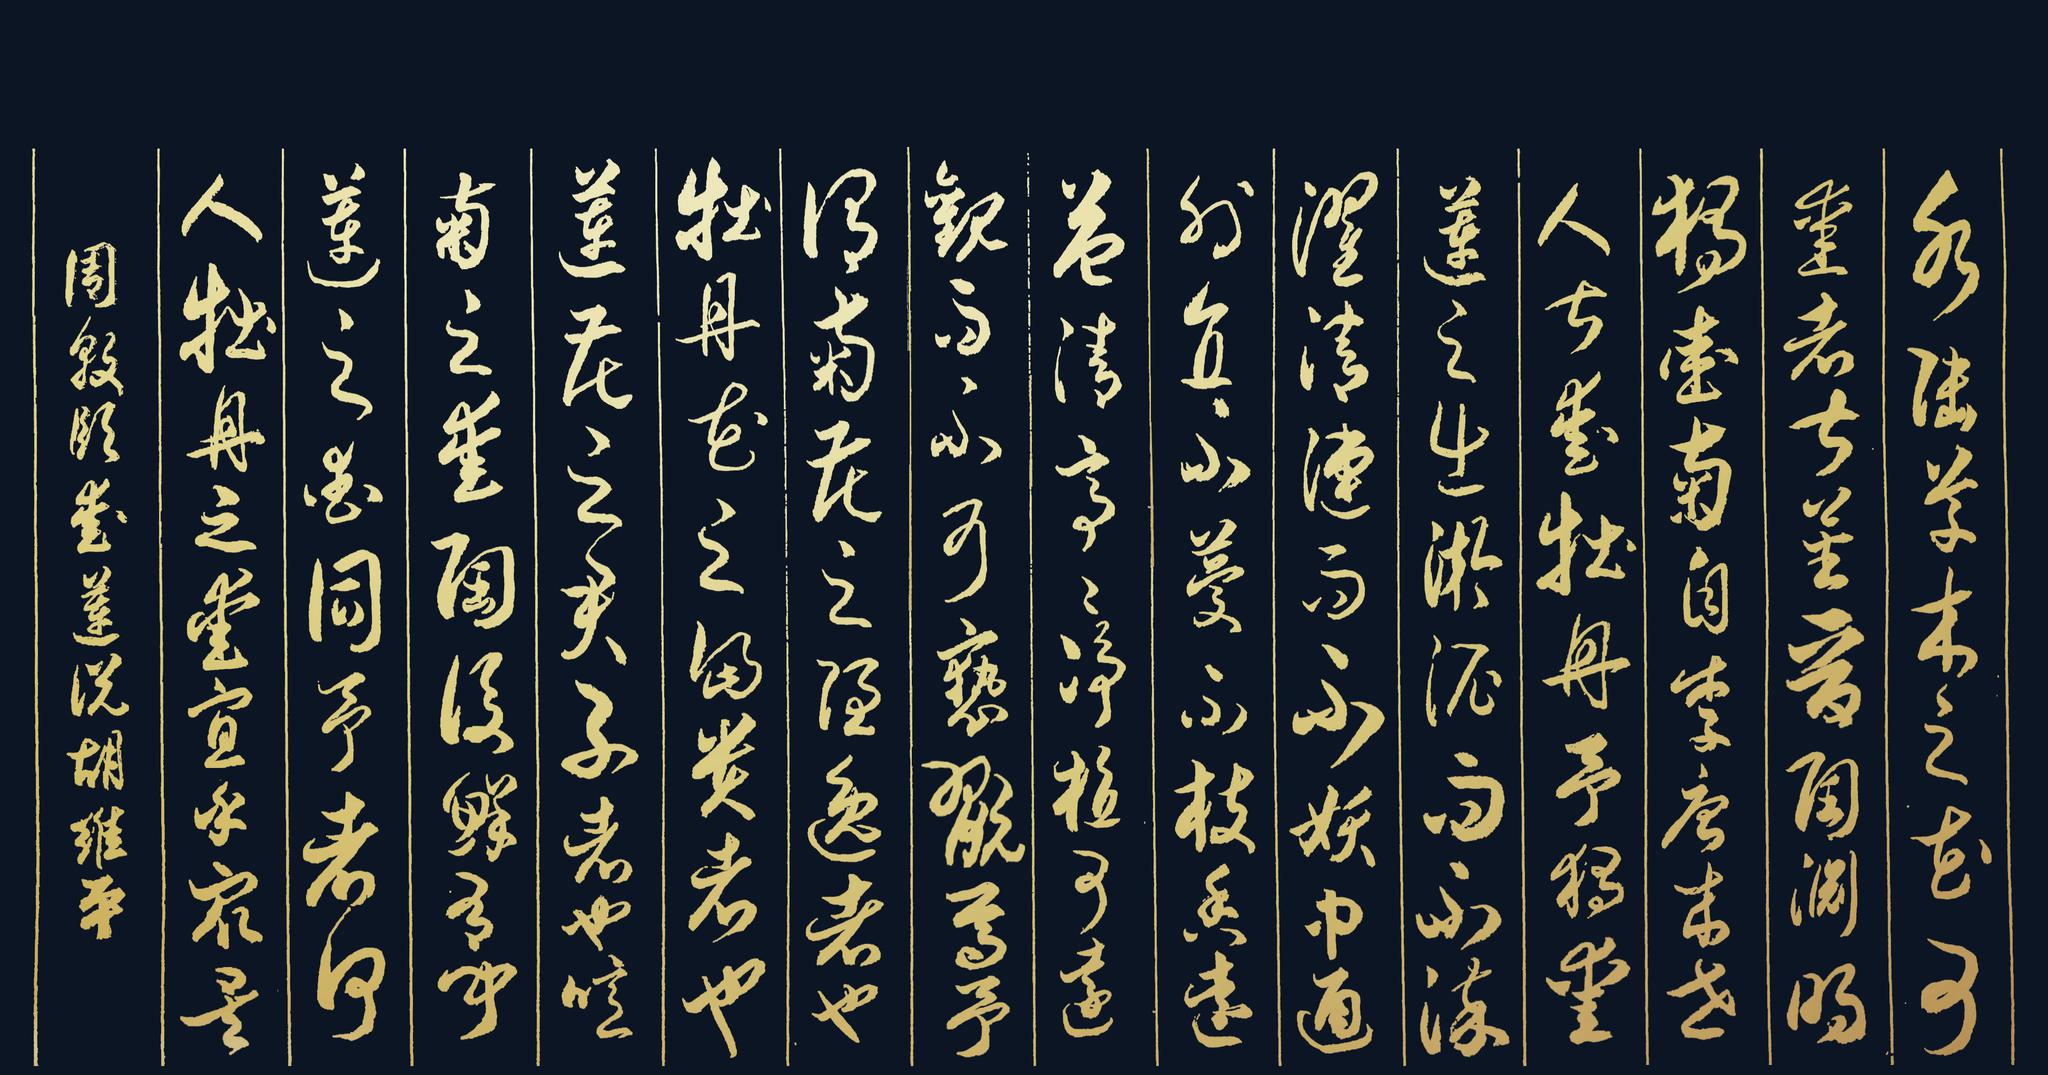 水陸草木之花可
愛者甚蕃晉陶淵明
獨愛菊自李唐來世
人甚愛牡丹予獨愛
蓮之出淤泥而不染
濯清漣而不妖中通
外直不蔓不枝香遠
益清亭々淨植可遠
觀而不可褻翫焉予
謂菊花之隱逸者也
牡丹花之富貴者也
蓮花之君子者也噫
菊之愛陶後鮮有聞
蓮之愛同予者何
人牡丹之愛宜乎眾矣
周敦頤愛蓮說胡維平